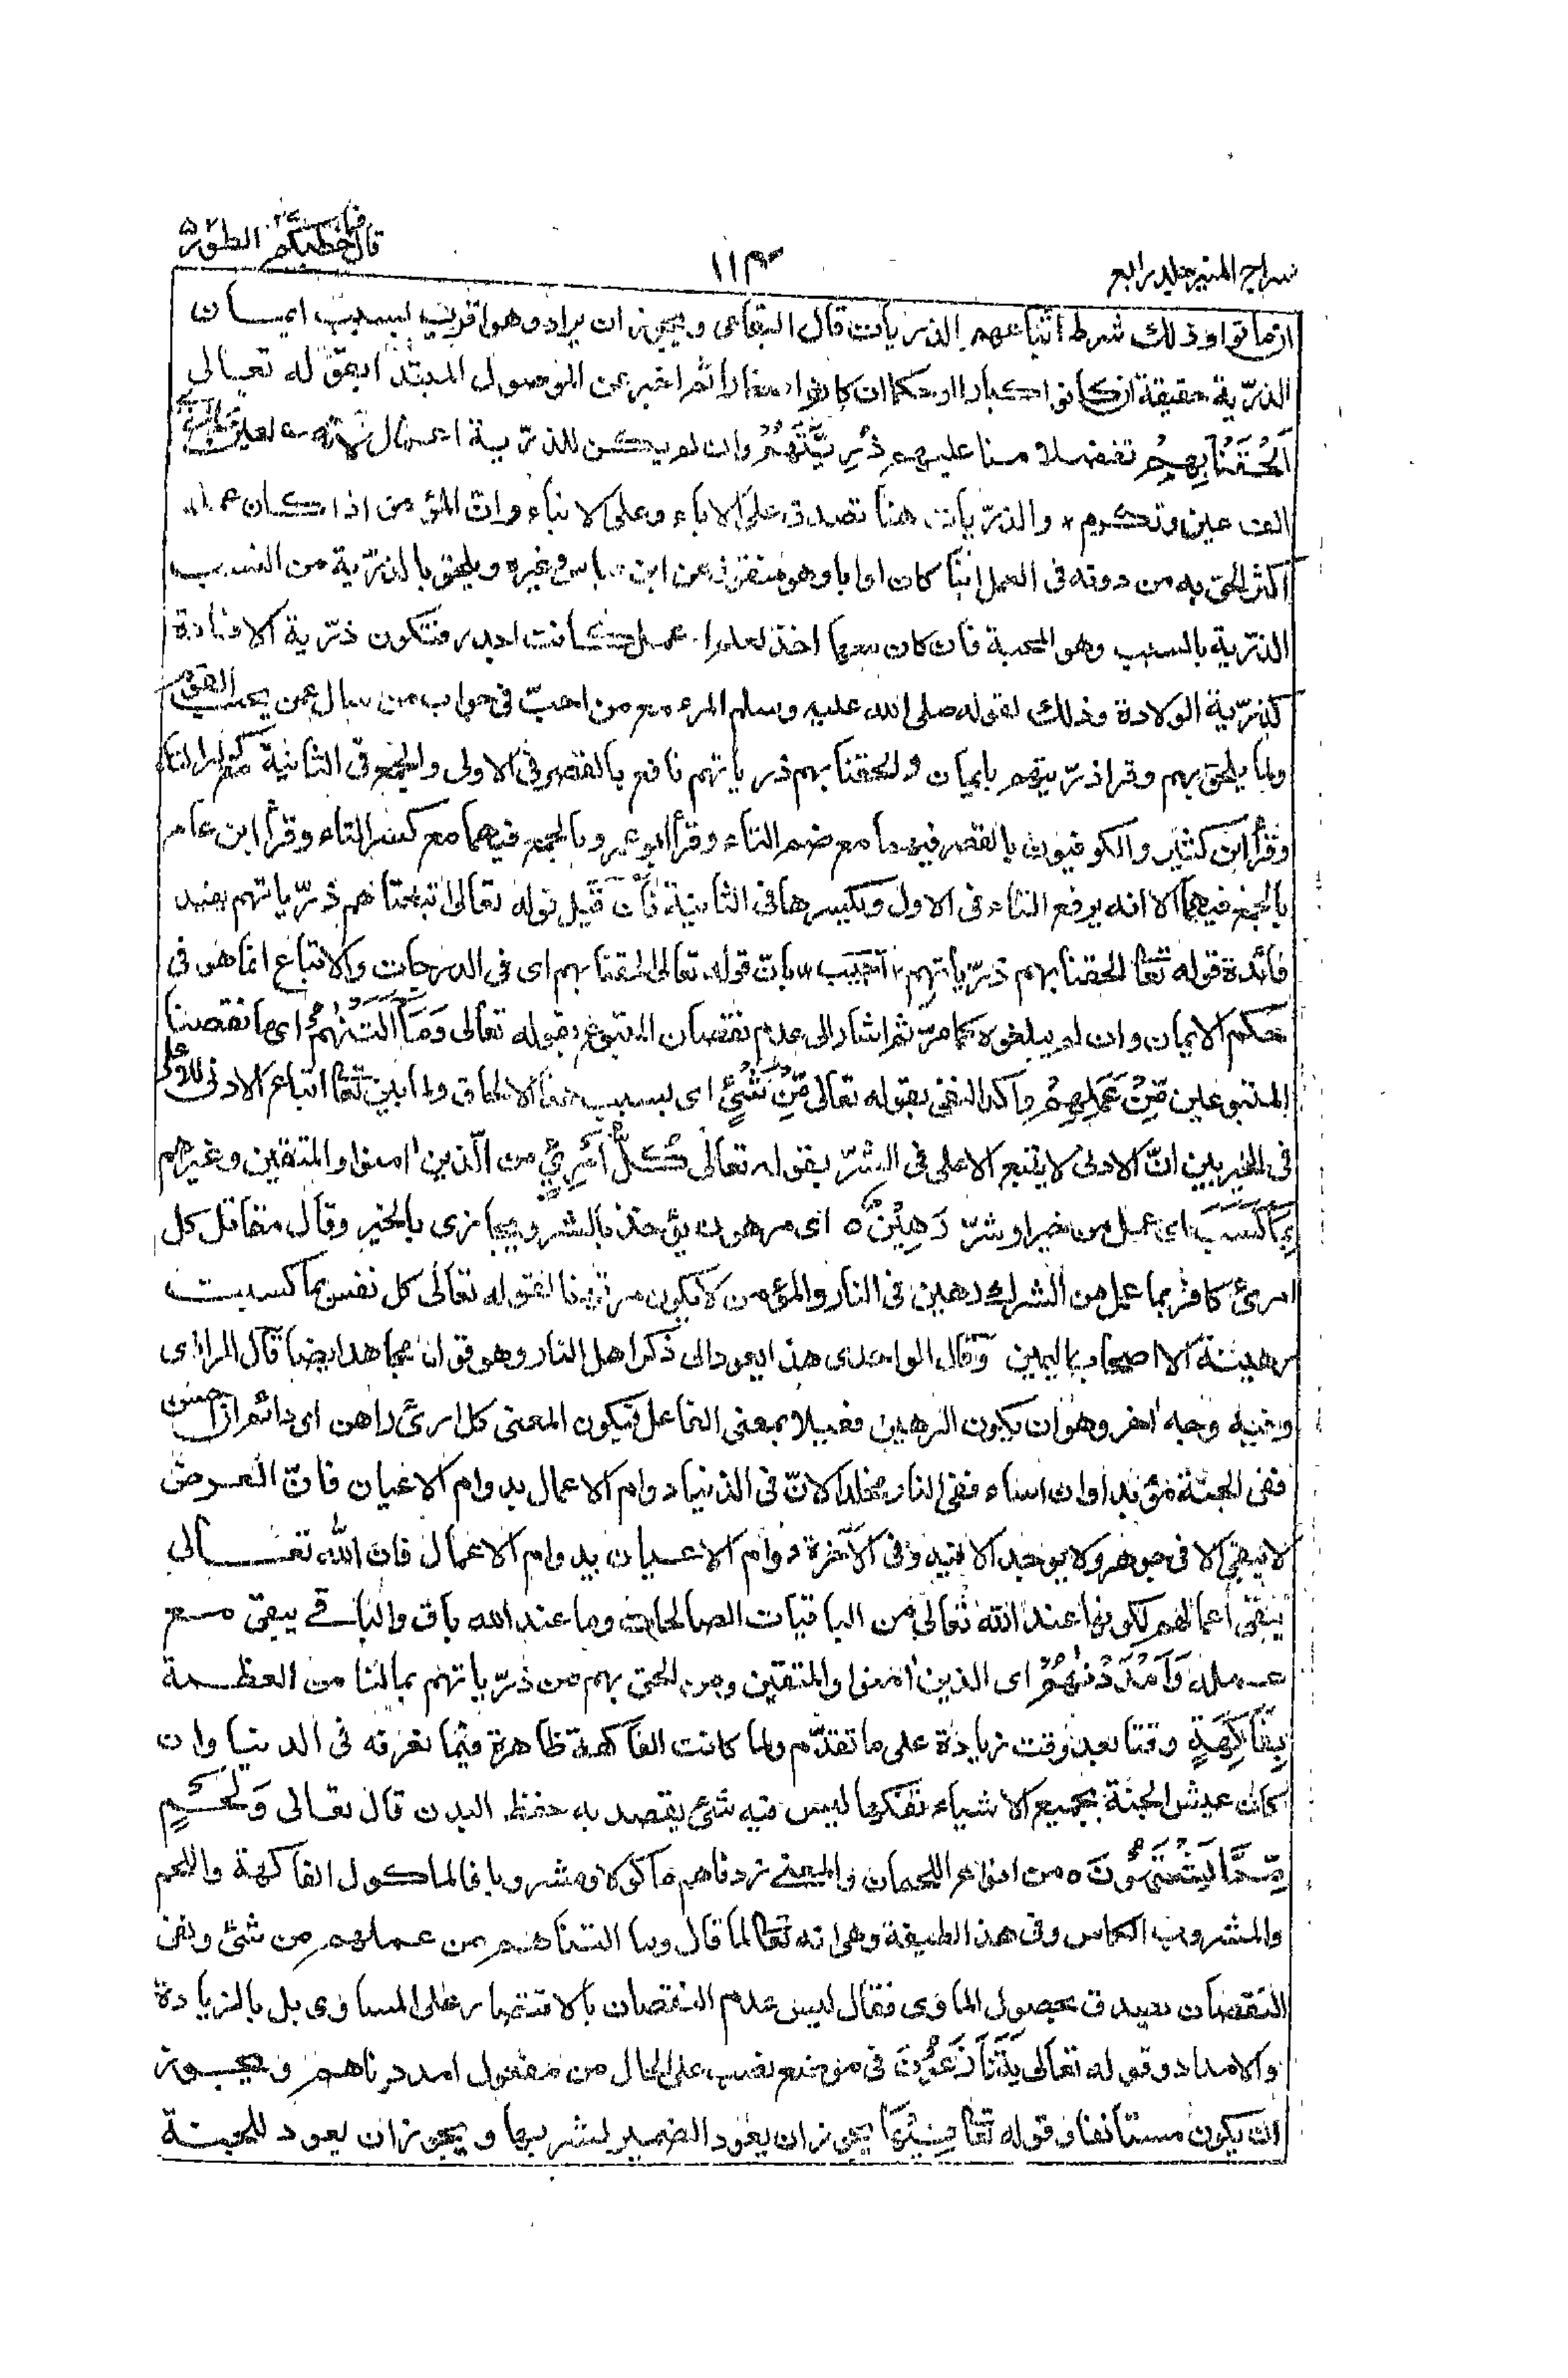 سراج المنير جلد رابع
١١٣
قال فما خطبكم ٢٧ الطور ٥٢
ان ماتوا وذلك شرط اتباعهم الذريات قال البقاعى ويجوز ان يراد وهو اقرب بسبب ايمان
الذرّية حقيقة ان كانوا كبارا او حكما ان كانوا صغارا ثم اخبر عن الموصول المبتدأ بقوله تعالى
اَلْحَقْنَا بِهِمْ تفضلا منا عليهم ذُرِّيَّتَهُمْ وان لم يكن للذرّية اعمال لانه لعين
الف عين وتكرم والذرّيات هنا تصدق على الاباء وعلى الابناء وانّ المؤمن اذا كان عمله
اكثر الحق به من دونه فى العمل ابنا كان او ابا وهو منقول عن ابن عباس وغيره ويلحق بالذرّية من النسب
الذرّية بالسبب وهو المحبة فان كان معها اخذ لعلم او عمل كانت اجدر فتكون ذرّية الافادة
كذرّية الولادة وذلك لقوله صلى الله عليه وسلم المرء مع من احبّ فى جواب من سال عمن يحب القوم
ولما يلحق بهم وقرا ذرّيتهم بايمان والحقنا بهم ذرياتهم نافع بالقصر فى الاولى والجمع فى الثانية مع كسر التاء
وقرأ ابن كثير والكوفيون بالقصر فيهما مع ضم التاء وقرأ ابو عمرو بالجمع فيهما مع كسر التاء وقرأ ابن عامر
بالجمع فيهما الا انه يرفع التاء فى الاول ويكسرها فى الثانية فان قيل قوله تعالى اتبعناهم ذرّياتهم يفيد
فائدة قوله تعا الحقنا بهم ذرّياتهم اجيب بانّ قوله تعالى الحقنا بهم اى فى الدرجات والاتباع انما هو فى
حكم الايمان وان لم يبلغوه كما مرّ ثم اشار الى عدم نقصان المتبوع بقوله تعالى وَمَا اَلَتْنٰهُمْ اى ما نقصنا
المتبوعين مِّنْ عَمَلِهِمْ واكد النفى بقوله تعالى مِّنْ شَيْءٍ اى بسبب هذا الالحاق ولما بين تعا اتباع الادنى للاعلى
فى الخير بين انّ الادنى لا يتبع الاعلى فى الشرّ بقوله تعالى كُلُّ امْرِئٍ من الّذين امنوا والمتقين وغيرهم
بِمَا كَسَبَ اى عمل من خير او شرّ رَهِيْنٌ ه اى مرهون يؤخذ بالشر ويجازى بالخير وقال مقاتل كل
امرئ كافر بما عمل من الشرك رهين فى النار والمؤمن لا يكون مرتهنا لقوله تعالى كل نفس بما كسبت
رهينة الا اصحاب اليمين وقال الواحدى هذا يعود الى ذكر اهل النار وهو قول مجاهد ايضا قال الرازى
وفيه وجه اخر وهو ان يكون الرهين فعيلا بمعنى الفاعل فيكون المعنى كل امرئ راهن اى دائم ان احسن
ففى الجنّة مؤبدا وان اساء ففى النار مخلدا لانّ فى الدنيا دوام الاعمال بدوام الاعيان فانّ العرض
لا يبقى الا فى جوهر ولا يوجد الا فيه وفى الآخرة دوام الاعيان بدوام الاعمال فان الله تعالى
يبقى اعمالهم لكونها عند الله تعالى من الباقيات الصالحات وما عند الله باق والباقى يبقى مع
عمله وَاَمْدَدْنٰهُمْ اى الذين امنوا والمتقين ومن الحق بهم من ذرّياتهم بما لنا من العظمة
بِفَاكِهَةٍ وقتا بعد وقت زيادة على ما تقدّم ولما كانت الفاكهة ظاهرة فيما نعرفه فى الدنيا وان
كان عيش الجنة بجميع الاشياء تفكها ليس فيه شئ يقصد به حفظ البدن قال تعالى وَلَحْمٍ
مِّمَّا يَشْتَهُوْنَ ه من انواع اللحمان والمعنى زدناهم ماكولا ومشروبا فالماكول الفاكهة واللحم
والمشروب الكاس وفى هذا لطيفة وهى انه تعا لما قال وما التناهم من عملهم من شئ ونفى
النقصان يصدق بحصول المساوى فقال ليس عدم النقصان بالاقتصار على المساوى بل بالزيادة
والامداد وقوله تعالى يَتَنَازَعُوْنَ فى موضع نصب على الحال من مفعول امددناهم ويجوز
ان يكون مستأنفا وقوله تعا فِيْهَا يجوز ان يعود الضمير لشربها ويجوز ان يعود للجنة